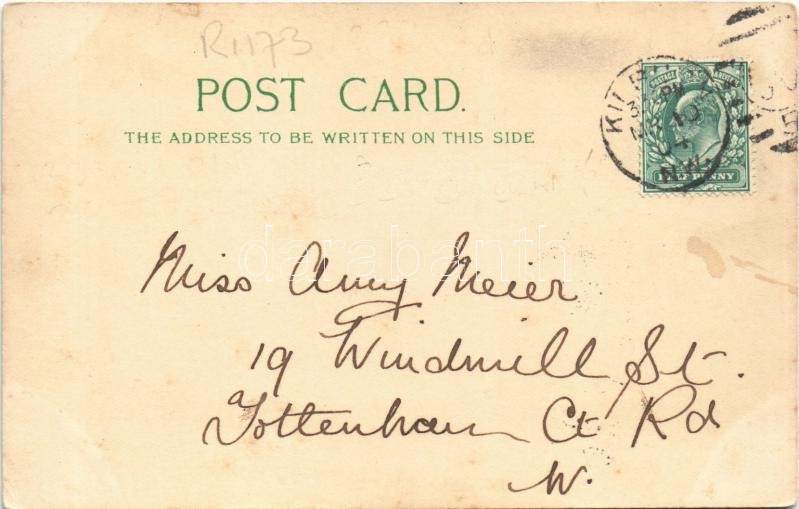 R1173
POST CARD.
THE ADDRESS TO BE WRITTEN ON THIS SIDE
POSTAGE REVENUE
HALFPENNY
04
N.W.
darabanth
Miss Amy Meier
19 Windmill St.
Tottenham Ct Rd
W.